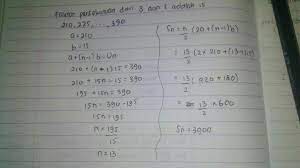 Faktor persekutuan dari 3 dan 5 adalah 15
210, 225, ..., 390
a = 210
b = 15
a + (n-1) b = Un
210 + (n-1) 15 = 390
210 + 15n - 15 = 390
195 + 15n = 390
15n = 390 - 195
15n = 195
n = 195
15
n = 13
Sn = n/2 (2a + (n-1) b)
= 13/2 (2 × 210 + (13-1) 15)
= 13/2 (420 + 180)
= 13/2 × 600
Sn = 3900